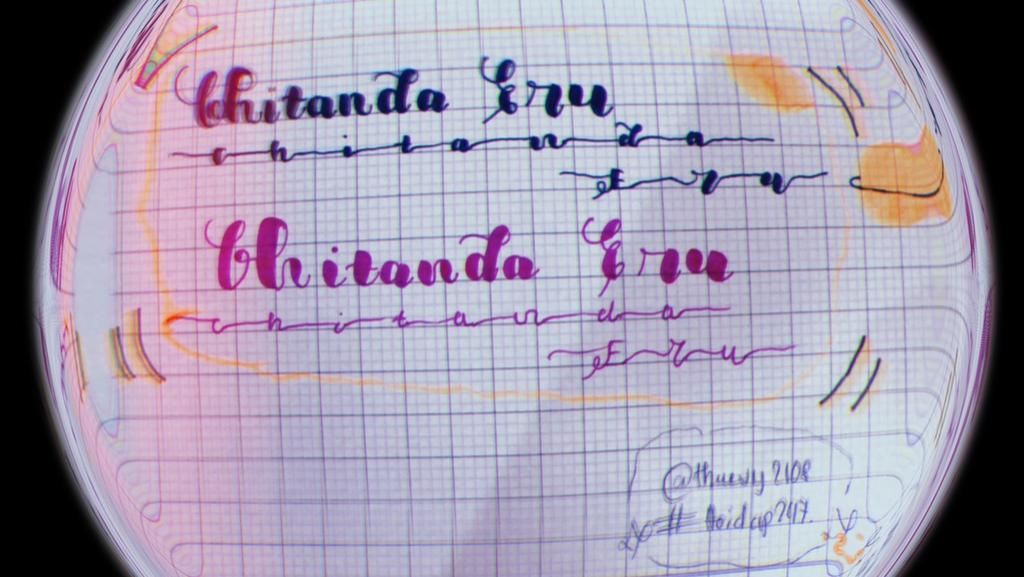 Chitanda Eru
chitanda
Eru
Chitanda Eru
chitanda
Eru
@thuevy2108
#